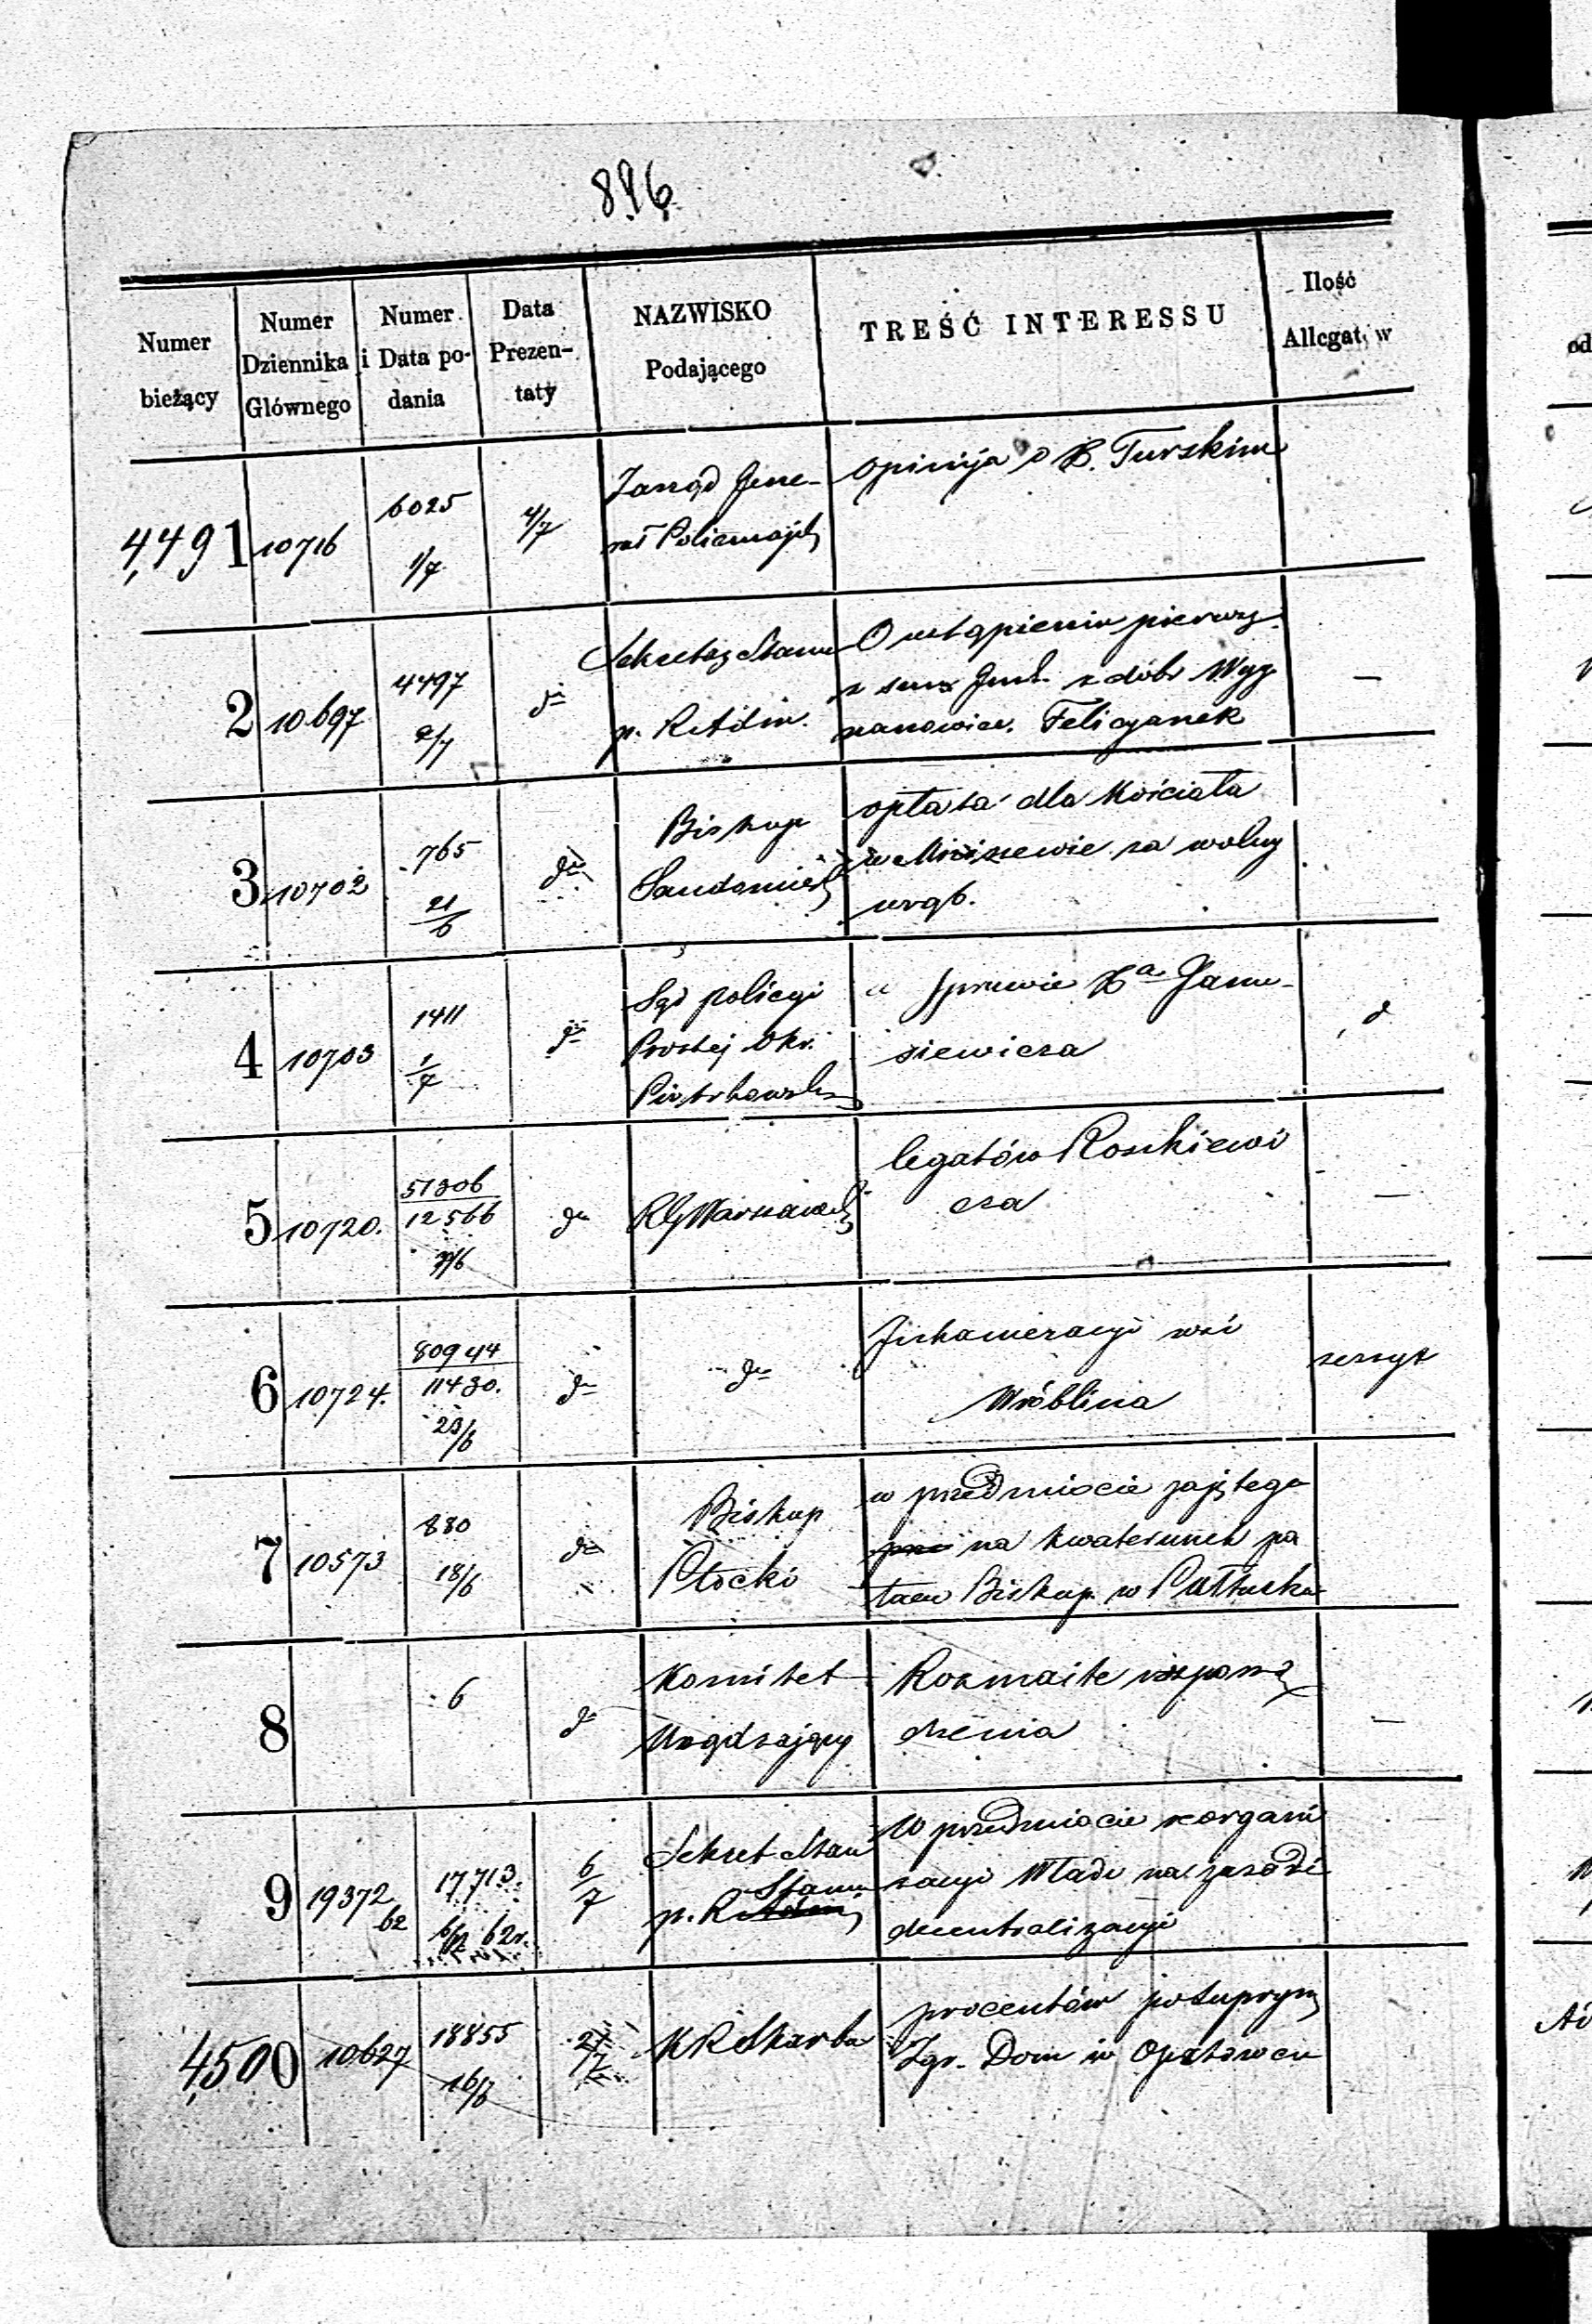 896
Numer bieżący
Numer Dziennika Głównego
Numer i Data podania
Data Prezentaty
NAZWISKO Podającego
TREŚĆ INTERESSU
Ilość Allegatów
4,491
10716
6025
1/7
4/7
Zarząd Gene-
rał Policmajstr
opinija o X. Turskim
2
10697
4497
2/7
do
Sekretarz Stanu
p. R Adm.
O ustąpieniu pierwsz.
z dóbr
Felicyanek
3
10702
765
21/6
do
Biskup
Sandomiersk
opłata dla Kościoła
w za wolny
wrąb.
4
10703
1411
1/7
do
Sąd policyi
Prostej Okr.
Piotrkowsk
w sprawie Xa Janu-
siewicza
5
10720.
51306
12566
do
RG Warszawsk
legatów Roszkiewi
cza
—
6
10724.
80944
11430.
23/6
do
do
wsi
Wróblina
zeszyt
7
10573
830
18/6
do
Biskup
Płocki
w przedmiocie zajętego
na kwaterunek pa
łacu Biskup. w Pułtusku
8
6
do
Komitet
Urządzający
Rozmaite rozporzą
dzenia
—
9
19372
62
17713.
62r.
6/7
Sekret Stan
Stanu
p. R Adm
W przedmiocie reorgani
zacyi Władz na zasadzie
decentralizacyi
4,500
10627
18855
16/6
KR Skarbu
procentów po suprym
Zgr. Dom w Opatowcu